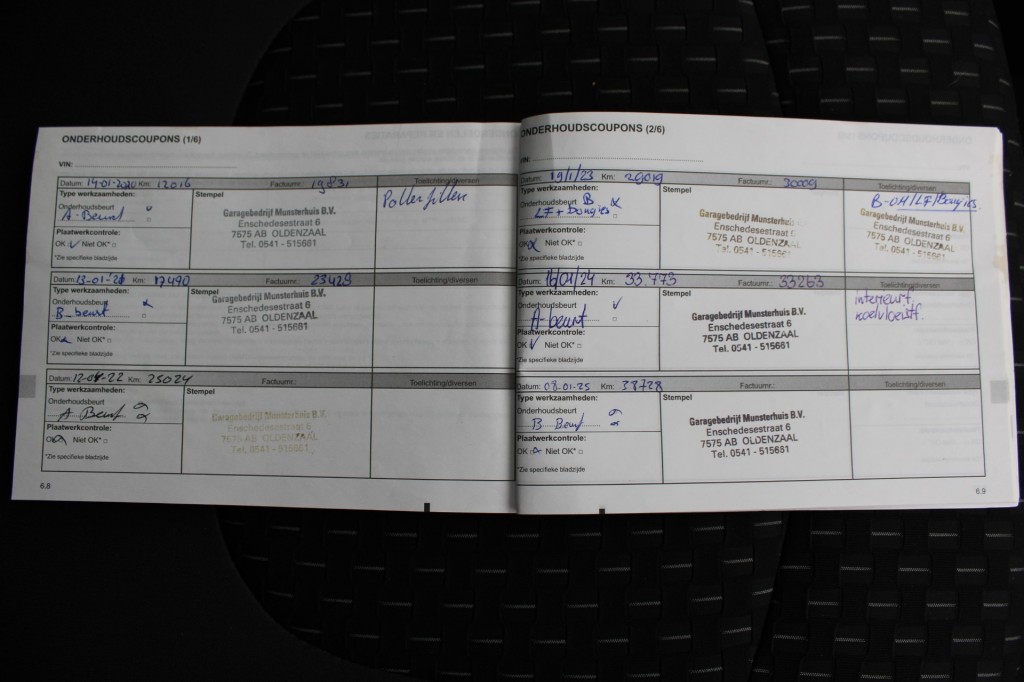 ONDERHOUDSCOUPONS (1/6)
VIN:
Datum: 14-01-2020 Km: 12016 Factuurnr.: 19831 Toelichting/diversen
Type werkzaamheden: Stempel
Onderhoudsbeurt
A-Beurt
Pollenfilter
Garagebedrijf Munsterhuis B.V.
Enschedesestraat 6
7575 AB OLDENZAAL
Tel. 0541 - 515661
Plaatwerkcontrole:
OK Niet OK*
*Zie specifieke bladzijde
Datum: 13-01-21 Km: 17490 Factuurnr.: 23429 Toelichting/diversen
Type werkzaamheden: Stempel
Onderhoudsbeurt
B-beurt
Garagebedrijf Munsterhuis B.V.
Enschedesestraat 6
7575 AB OLDENZAAL
Tel. 0541 - 515661
Plaatwerkcontrole:
OK Niet OK*
*Zie specifieke bladzijde
Datum: Km: 25024 Factuurnr.: Toelichting/diversen
Type werkzaamheden: Stempel
Onderhoudsbeurt
A Beurt
Garagebedrijf Munsterhuis B.V.
Enschedesestraat 6
7575 AB OLDENZAAL
Tel. 0541 - 515661
Plaatwerkcontrole:
OK Niet OK*
*Zie specifieke bladzijde
6.8
ONDERHOUDSCOUPONS (2/6)
VIN:
Datum: 19/1/23 Km: 29019 Factuurnr.: 30009 Toelichting/diversen
Type werkzaamheden: Stempel
Onderhoudsbeurt B
LF + bougies
B-OH/LF/Bougies
Garagebedrijf Munsterhuis
Enschedesestraat 6
7575 AB OLDENZAAL
Tel. 0541 - 515661
Garagebedrijf Munsterhuis
Enschedesestraat 6
7575 AB OLDENZAAL
Tel. 0541 - 515661
Plaatwerkcontrole:
OK Niet OK*
*Zie specifieke bladzijde
Datum: 16/01/24 Km: 33.773 Factuurnr.: 33263 Toelichting/diversen
Type werkzaamheden: Stempel
Onderhoudsbeurt
A-beurt
interieurf.
koelvloeistf.
Garagebedrijf Munsterhuis B.V.
Enschedesestraat 6
7575 AB OLDENZAAL
Tel. 0541 - 515661
Plaatwerkcontrole:
OK Niet OK*
*Zie specifieke bladzijde
Datum: 08-01-25 Km: 38728 Factuurnr.: Toelichting/diversen
Type werkzaamheden: Stempel
Onderhoudsbeurt
B Beurt
Garagebedrijf Munsterhuis B.V.
Enschedesestraat 6
7575 AB OLDENZAAL
Tel. 0541 - 515661
Plaatwerkcontrole:
OK Niet OK*
*Zie specifieke bladzijde
6.9